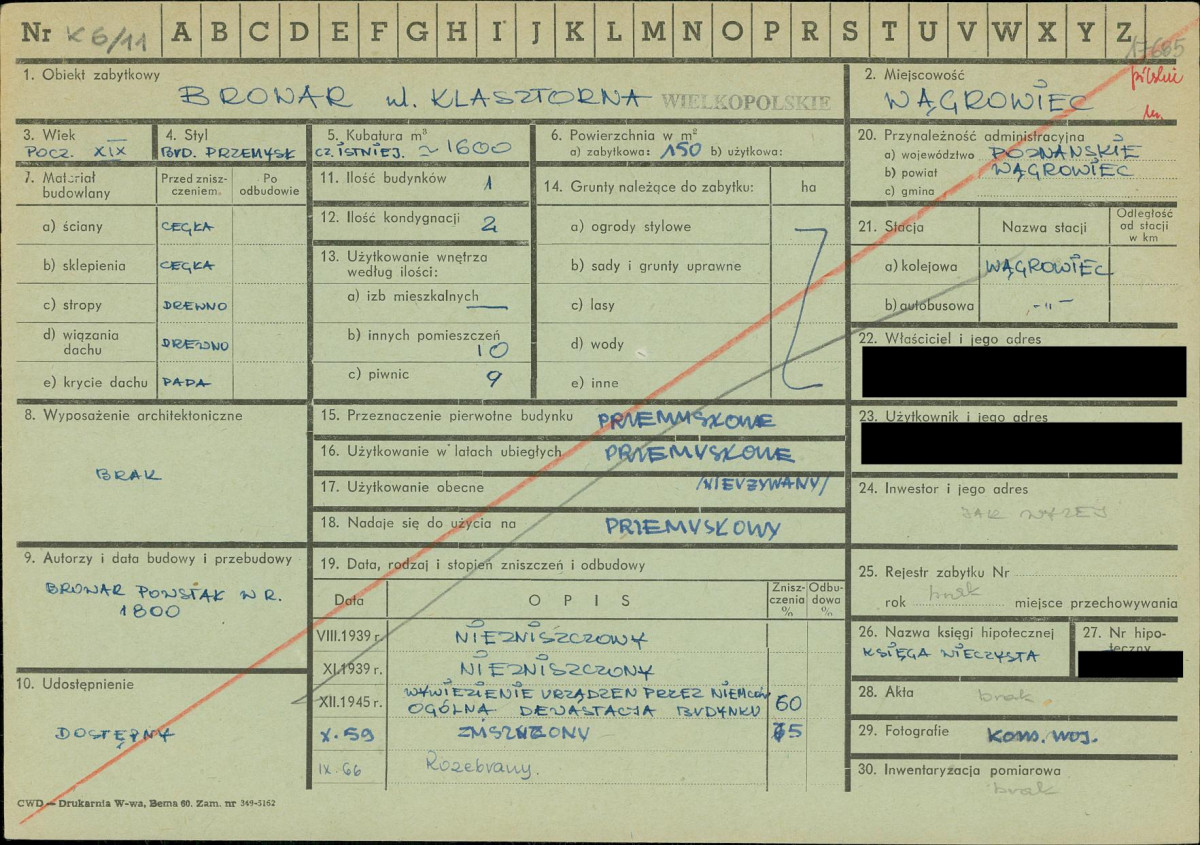 Nr K 6/11 A B C D E F G H I J K L M N O P R S T U V W X Y Z
17665
1. Obiekt zabytkowy
BROWAR ul. KLASZTORNA WIELKOPOLSKIE
2. Miejscowość
WĄGROWIEC
3. Wiek
POCZ. XIX
4. Styl
BUD. PRZEMYSŁ
5. Kubatura m³
CZ. ISTNIEJ. ~ 1600
6. Powierzchnia w m²
a) zabytkowa: 150 b) użytkowa:
20. Przynależność administracyjna
a) województwo POZNAŃSKIE
b) powiat WĄGROWIEC
c) gmina
7. Materiał budowlany
Przed zniszczeniem.
Po odbudowie
a) ściany CEGŁA
b) sklepienia CEGŁA
c) stropy DREWNO
d) wiązania dachu DREWNO
e) krycie dachu PAPA
11. Ilość budynków 1
12. Ilość kondygnacji 2
13. Użytkowanie wnętrza według ilości:
a) izb mieszkalnych —
b) innych pomieszczeń 10
c) piwnic 9
14. Grunty należące do zabytku: ha
a) ogrody stylowe
b) sady i grunty uprawne
c) lasy
d) wody
e) inne
21. Stacja
Nazwa stacji
Odległość od stacji w km
a) kolejowa WĄGROWIEC
b) autobusowa -"-
22. Właściciel i jego adres
23. Użytkownik i jego adres
8. Wyposażenie architektoniczne
BRAK
15. Przeznaczenie pierwotne budynku PRZEMYSŁOWE
16. Użytkowanie w latach ubiegłych PRZEMYSŁOWE
17. Użytkowanie obecne /NIEUŻYWANY/
18. Nadaje się do użycia na PRZEMYSŁOWY
24. Inwestor i jego adres
JAK WYŻEJ
9. Autorzy i data budowy i przebudowy
BROWAR POWSTAŁ W R.
1800
19. Data, rodzaj i stopień zniszczeń i odbudowy
Data OPIS Zniszczenia % Odbudowa %
VIII.1939 r. NIEZNISZCZONY
XI.1939 r. NIEZNISZCZONY
XII.1945 r. WYWIEZIENIE URZĄDZEŃ PRZEZ NIEMCÓW
OGÓLNA DEWASTACJA BUDYNKU 60
X. 59 ZNISZCZONY 65
IX. 66 Rozebrany.
25. Rejestr zabytku Nr
rok brak miejsce przechowywania
26. Nazwa księgi hipotecznej
KSIĘGA WIECZYSTA
27. Nr hipoteczny
10. Udostępnienie
DOSTĘPNY
28. Akta brak
29. Fotografie Kons. woj.
30. Inwentaryzacja pomiarowa
brak
CWD — Drukarnia W-wa, Bema 60. Zam. nr 349-5162